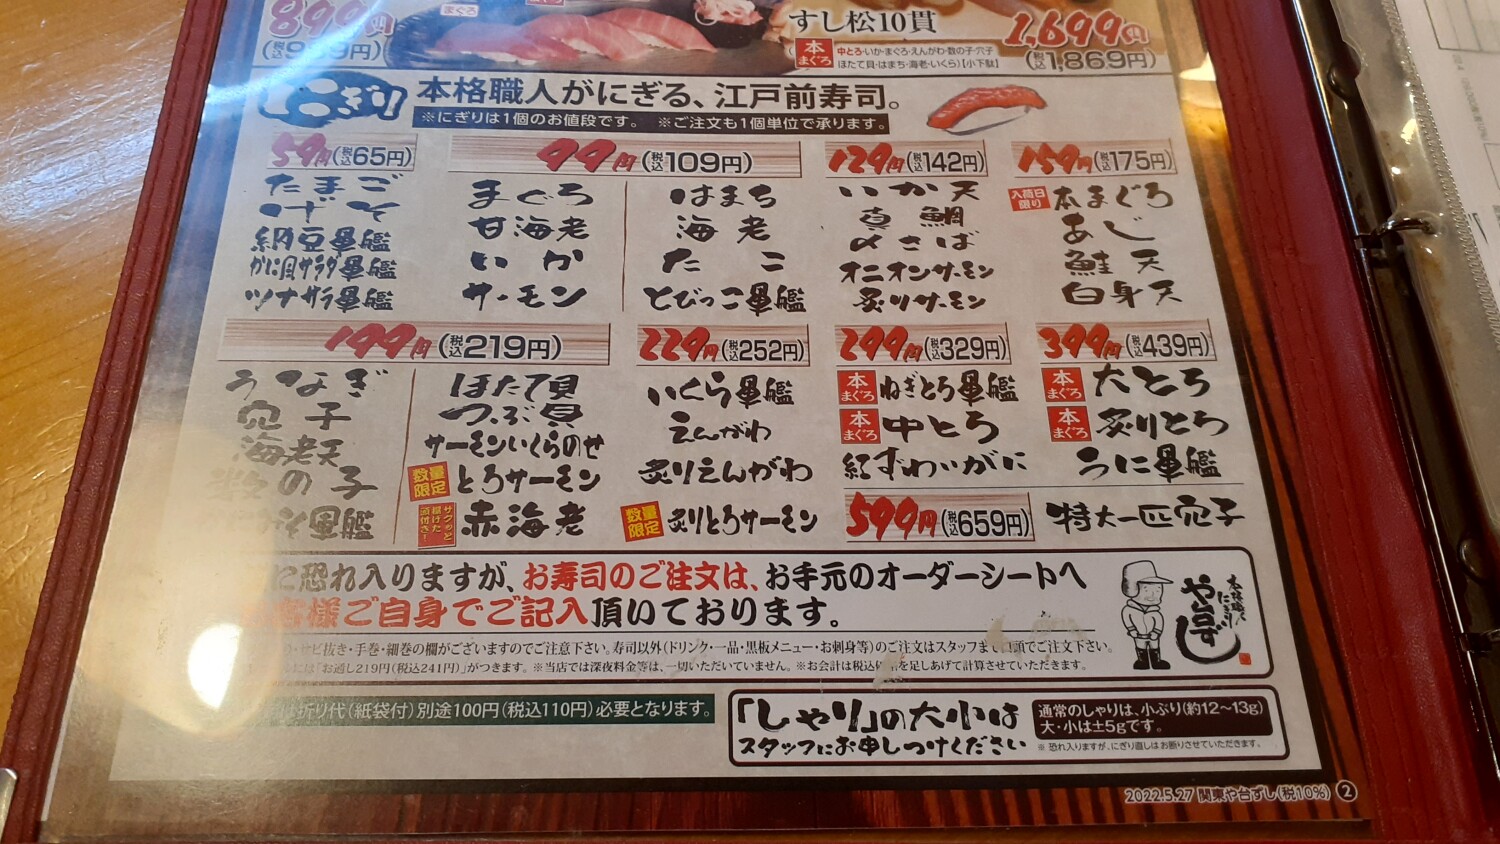 899円
まぐろ
(税込989円)
すし松10貫
1,699円
(税込1,869円)
本まぐろ
中とろ・いか・まぐろ・えんがわ・数の子・穴子
ほたて貝・はまち・海老・いくら)【小下駄】
にぎり
本格職人がにぎる、江戸前寿司。
※にぎりは1個のお値段です。 ※ご注文も1個単位で承ります。
59円(税込65円)
たまご
げそ
納豆軍艦
かに風サラダ軍艦
ツナサラダ軍艦
99円(税込109円)
まぐろ
甘海老
いか
サーモン
はまち
海老
たこ
とびっこ軍艦
129円(税込142円)
いか天
真鯛
〆さば
オニオンサーモン
炙りサーモン
159円(税込175円)
入荷日限り 本まぐろ
あじ
鮭天
白身天
199円(税込219円)
うなぎ
穴子
海老天
数の子
軍艦
ほたて貝
つぶ貝
サーモンいくらのせ
数量限定 とろサーモン
サクッと揚げた頭付き! 赤海老
229円(税込252円)
いくら軍艦
えんがわ
炙りえんがわ
数量限定 炙りとろサーモン
299円(税込329円)
本まぐろ ねぎとろ軍艦
本まぐろ 中とろ
紅ずわいがに
399円(税込439円)
本まぐろ 大とろ
本まぐろ 炙りとろ
うに軍艦
599円(税込659円)
特大一匹穴子
に恐れ入りますが、お寿司のご注文は、お手元のオーダーシートへ
お客様ご自身でご記入頂いております。
・サビ抜き・手巻・細巻の欄がございますのでご注意下さい。寿司以外(ドリンク・一品・黒板メニュー・お刺身等)のご注文はスタッフまで口頭でご注文下さい。
には「お通し219円(税込241円)」がつきます。※当店では深夜料金等は、一切いただいていません。※お会計は税込価格を足しあげて計算させていただきます。
本格職人にぎり
や台ずし
は折り代(紙袋付)別途100円(税込110円)必要となります。
「しゃり」の大小は
スタッフにお申しつけください
通常のしゃりは、小ぶり(約12〜13g)
大・小は±5gです。
※ 恐れ入りますが、にぎり直しはお断りさせていただきます。
2022.5.27 関東や台ずし(税10%) 2